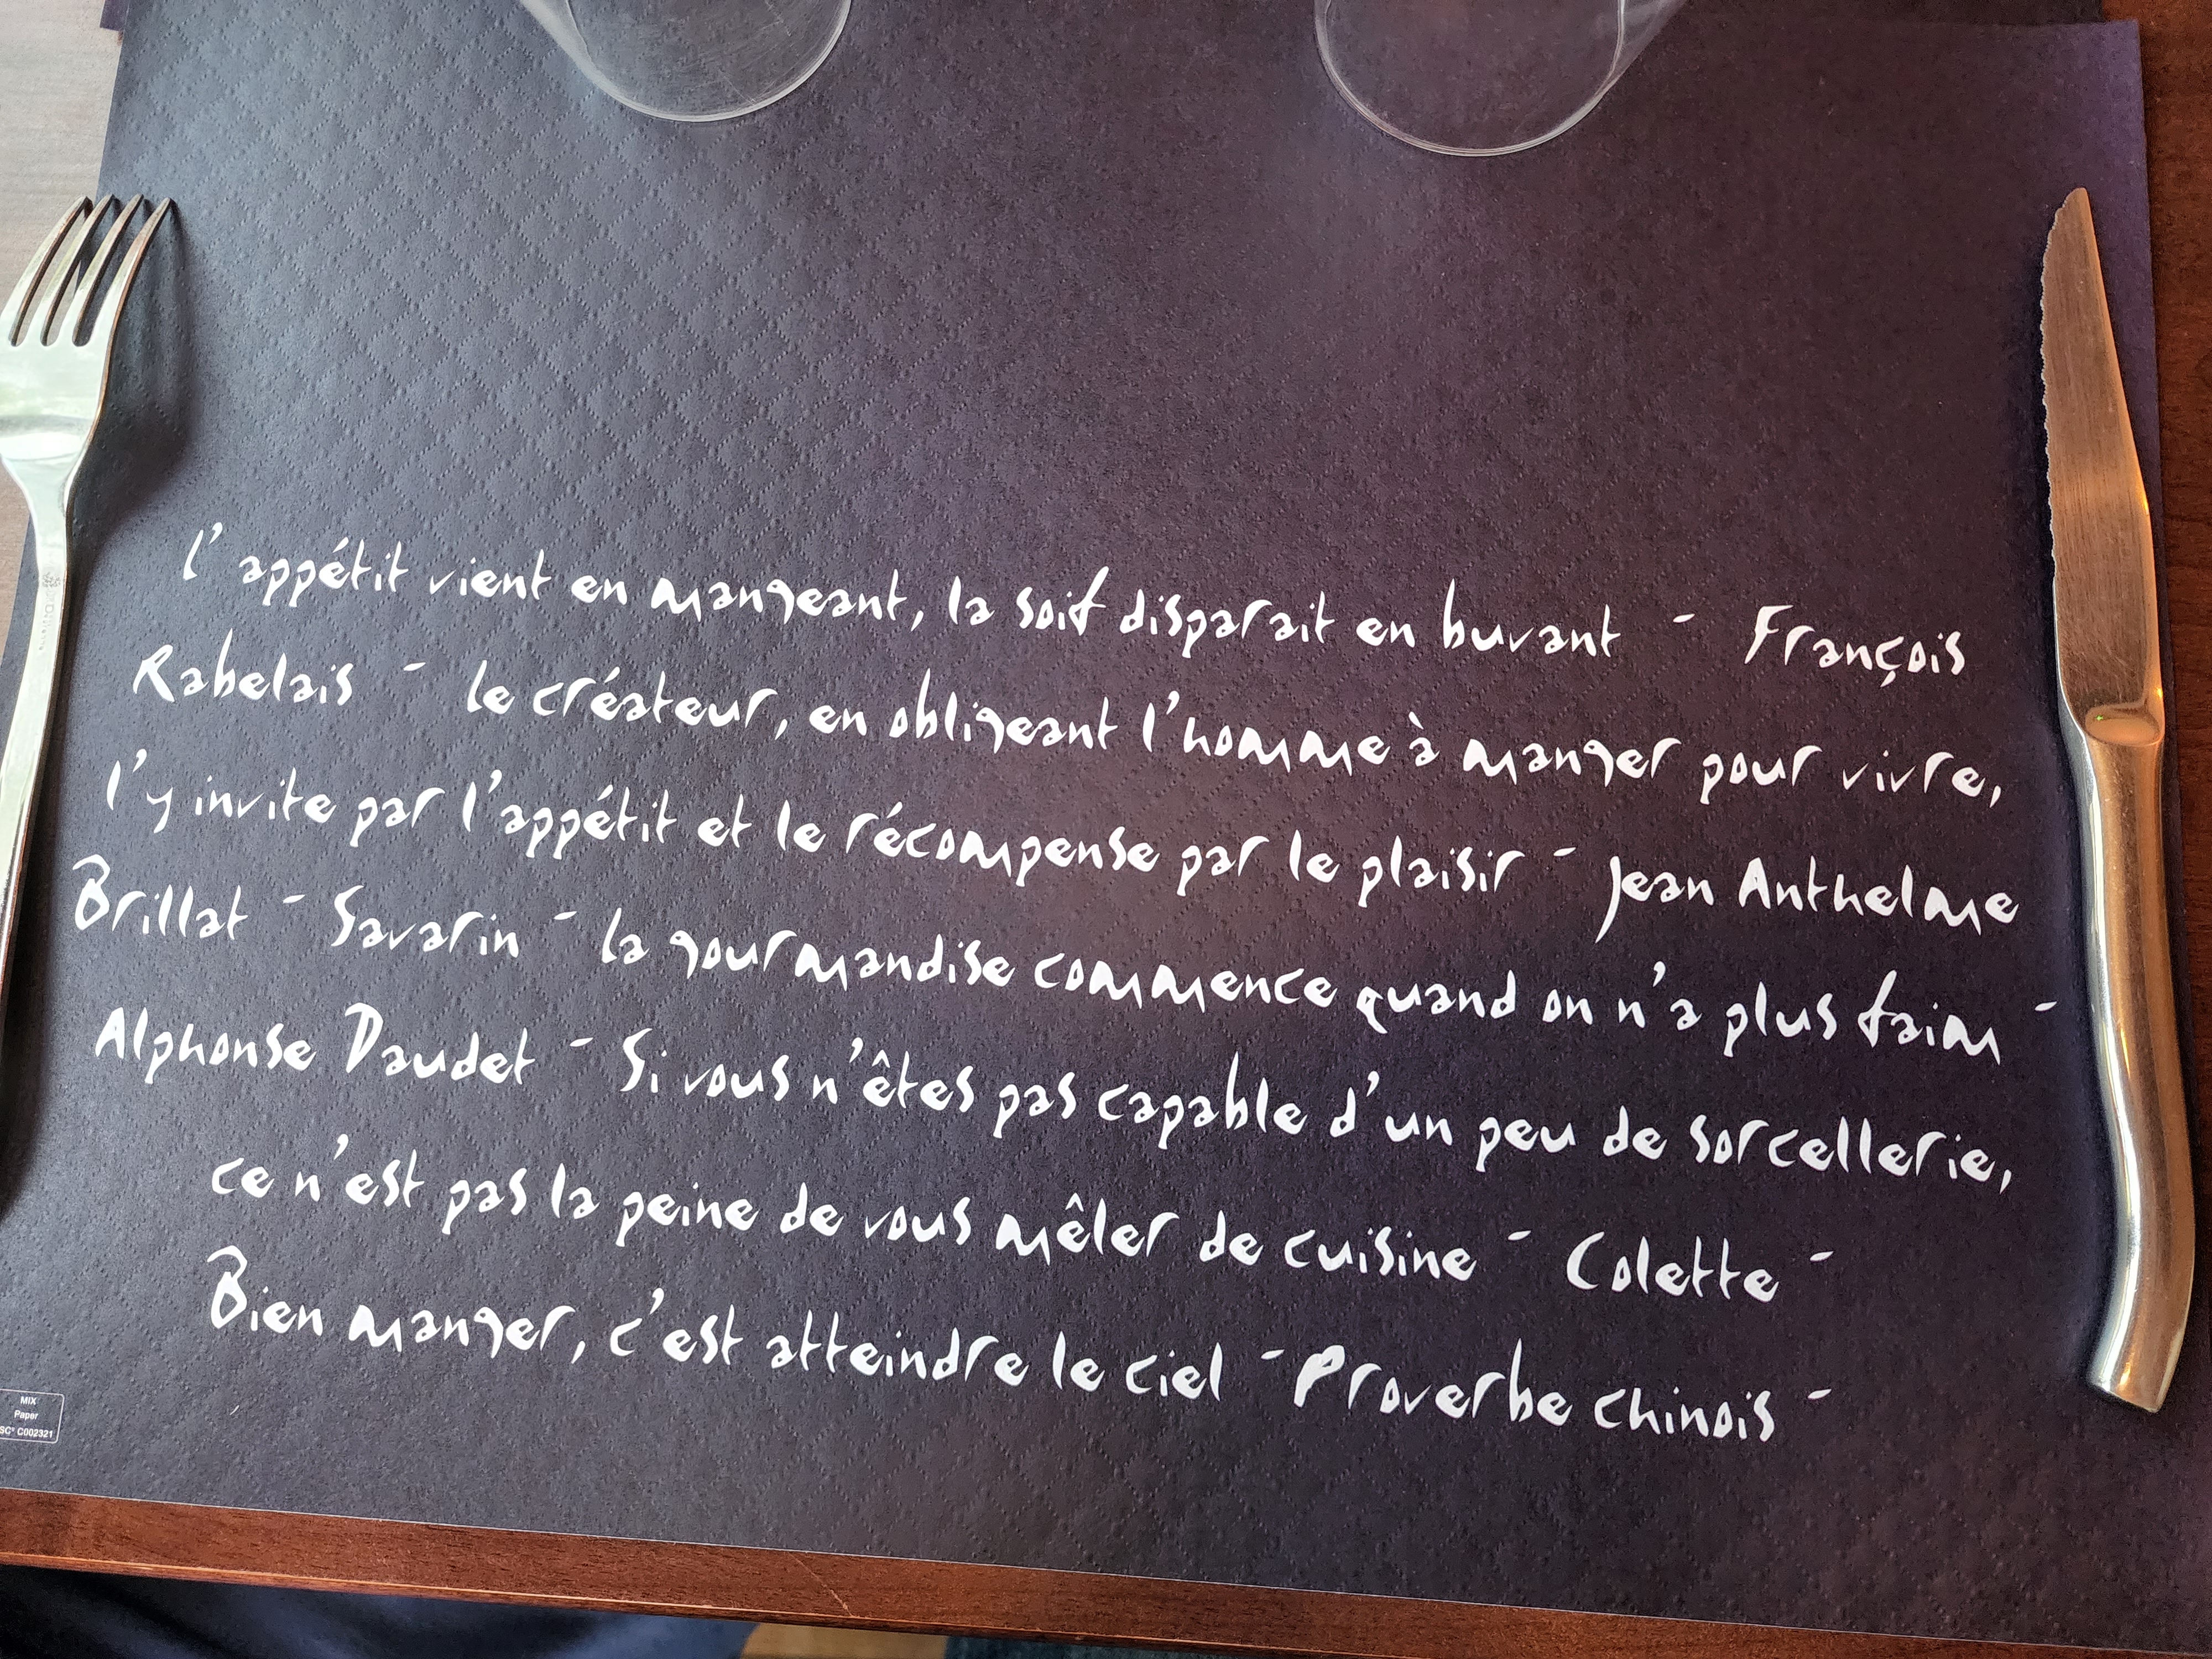 l'appétit vient en mangeant, la soif disparait en buvant - François
Rabelais - le créateur, en obligeant l'homme à manger pour vivre,
l'y invite par l'appétit et le récompense par le plaisir - Jean Anthelme
Brillat - Savarin - la gourmandise commence quand on n'a plus faim -
Alphonse Daudet - Si vous n'êtes pas capable d'un peu de sorcellerie,
ce n'est pas la peine de vous mêler de cuisine - Colette -
Bien manger, c'est atteindre le ciel - Proverbe chinois -
MIX
Paper
SC® C002321